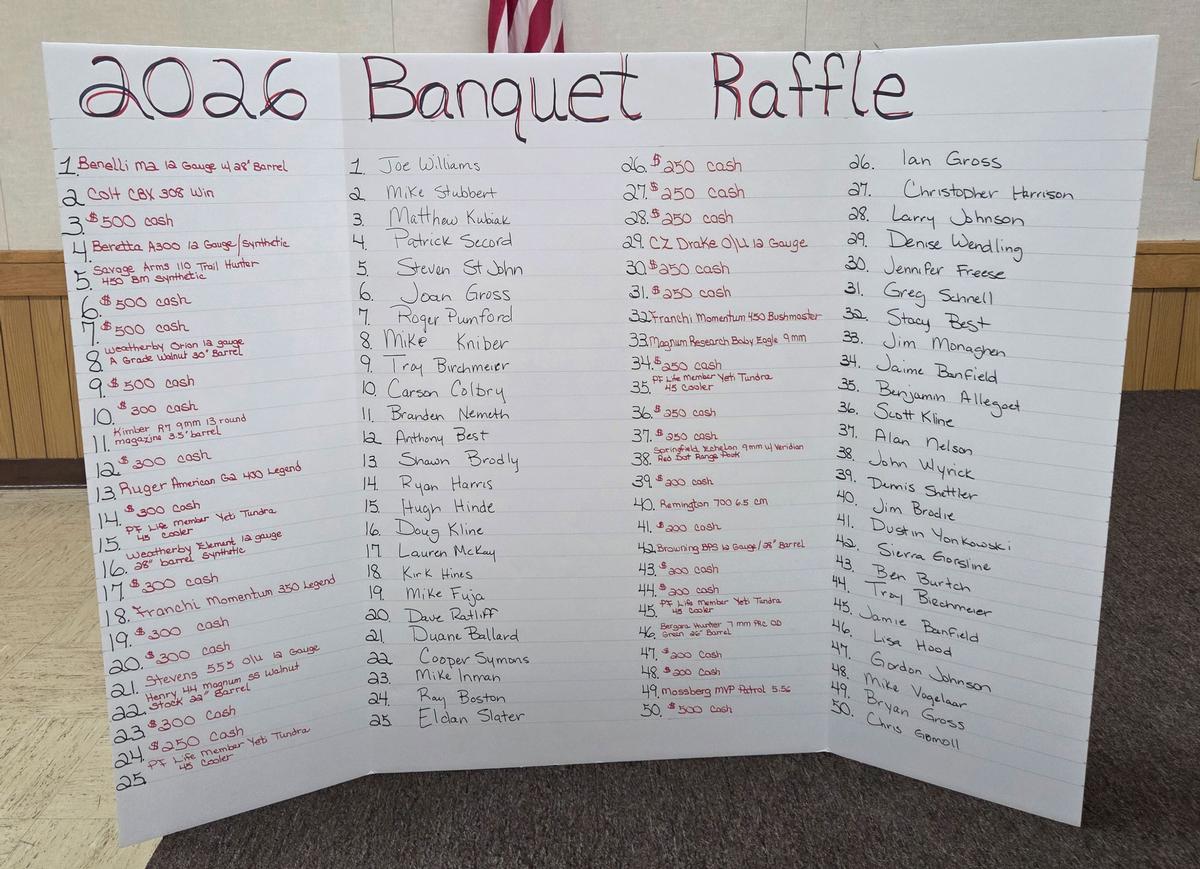 2026 Banquet Raffle
1. Benelli M2 12 Gauge w/ 28" Barrel
2 Colt CBX 308 Win
3. $500 cash
4. Beretta A300 12 Gauge/Synthetic
5. Savage Arms 110 Trail Hunter
450 Bm Synthetic
6. $500 cash
7. $500 cash
8. Weatherby Orion 12 gauge
A Grade Walnut 30" Barrel
9. $500 cash
10. $300 cash
11. Kimber R7 9mm 13 round
magazine 3.5" barrel
12. $300 cash
13. Ruger American G2 400 Legend
14. $300 cash
15. PF Life Member Yeti Tundra
45 cooler
16. Weatherby Element 12 gauge
28" barrel Synthetic
17. $300 cash
18. Franchi Momentum 350 Legend
19. $300 cash
20. $300 cash
21. Stevens 555 O/U 12 Gauge
22. Henry 44 Magnum SS Walnut
Stock 22" Barrel
23 $300 cash
24 $250 Cash
25. PF Life Member Yeti Tundra
45 Cooler
1. Joe Williams
2. Mike Stubbert
3. Matthew Kubiak
4. Patrick Secord
5. Steven St John
6. Joan Gross
7. Roger Pumford
8 Mike Kniber
9. Troy Birchmeier
10. Carson Colbry
11. Branden Nemeth
12 Anthony Best
13. Shawn Brodly
14. Ryan Harris
15. Hugh Hinde
16. Doug Kline
17. Lauren McKay
18. Kirk Hines
19. Mike Fuja
20. Dave Ratliff
21. Duane Ballard
22 Cooper Symons
23. Mike Inman
24. Ray Boston
25 Eldan Slater
26. $250 cash
27. $250 cash
28. $250 cash
29. CZ Drake O/U 12 Gauge
30. $250 cash
31. $250 cash
32. Franchi Momentum 450 Bushmaster
33. Magnum Research Baby Eagle 9mm
34. $250 cash
35. PF Life Member Yeti Tundra
45 Cooler
36. $250 cash
37. $250 cash
38. Springfield Echelon 9mm w/ Veridian
Red Dot Range Pack
39. $200 cash
40. Remington 700 6.5 cm
41. $200 cash
42. Browning BPS 12 Gauge/28" Barrel
43. $200 cash
44. $200 cash
45. PF Life Member Yeti Tundra
45 Cooler
46. Bergara Hunter 7mm PRC OD
Green 26" Barrel
47. $200 cash
48. $200 cash
49. Mossberg MVP Patrol 5.56
50. $500 cash
26. Ian Gross
27. Christopher Harrison
28. Larry Johnson
29. Denise Wendling
30. Jennifer Freese
31. Greg Schnell
32. Stacy Best
33. Jim Monaghen
34. Jaime Banfield
35. Benjamin Allegoet
36. Scott Kline
37. Alan Nelson
38. John Wyrick
39. Dennis Shettler
40. Jim Brodie
41. Dustin Yonkowski
42. Sierra Gorsline
43. Ben Burtch
44. Troy Birchmeier
45. Jamie Banfield
46. Lisa Hood
47. Gordon Johnson
48. Mike Vogelaar
49. Bryan Gross
50. Chris Gomoll